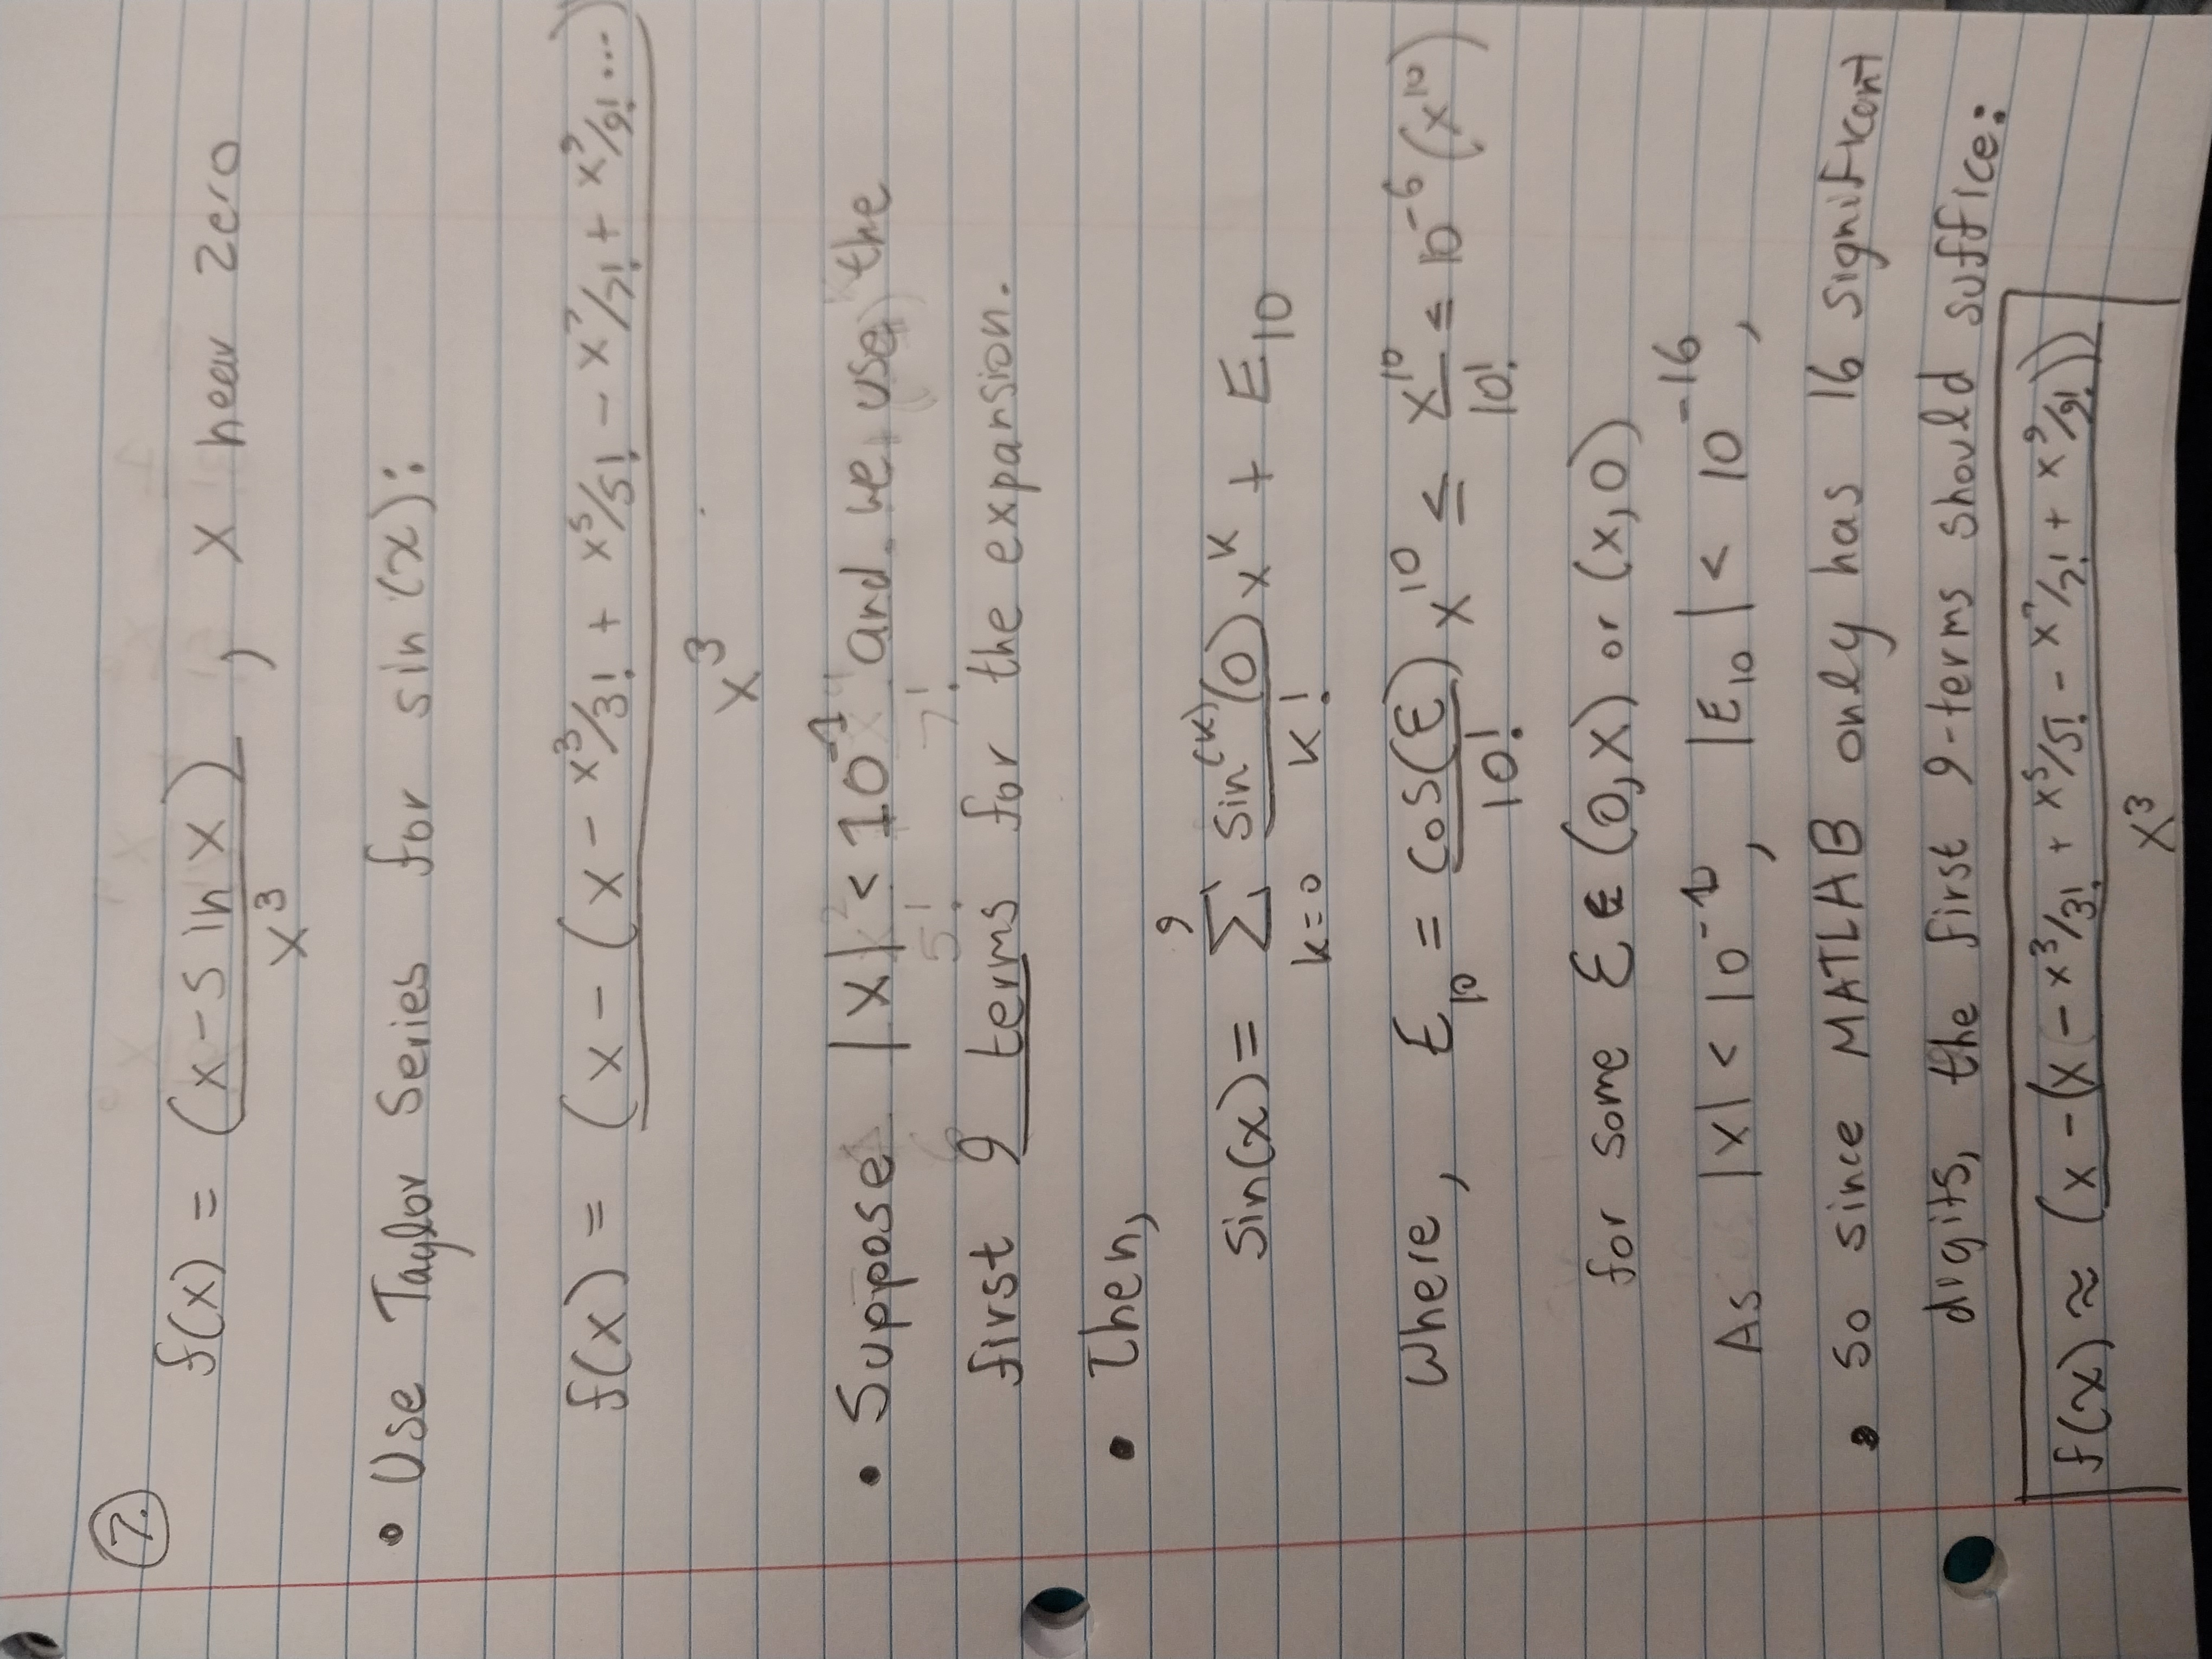 7.
f(x) = (x - sin x) / x³ , x near zero
• Use Taylor Series for sin(x):
f(x) = (x - (x - x³/3! + x⁵/5! - x⁷/7! + x⁹/9! ...) / x³
• Suppose |x| < 10⁻¹ and we use the
first 9 terms for the expansion.
• Then,
sin(x) = Σ_{k=0}^{9} sin^{(k)}(0)/k! x^k + E₁₀
Where, E₁₀ = cos(ε)/10! x¹⁰ ≤ x¹⁰/10! ≤ 10⁻⁶(x¹⁰)
for some ε ∈ (0,x) or (x,0)
As |x| < 10⁻¹, |E₁₀| < 10⁻¹⁶,
• So since MATLAB only has 16 significant
digits, the first 9-terms should suffice:
f(x) ≈ (x - (x - x³/3! + x⁵/5! - x⁷/7! + x⁹/9!)) / x³